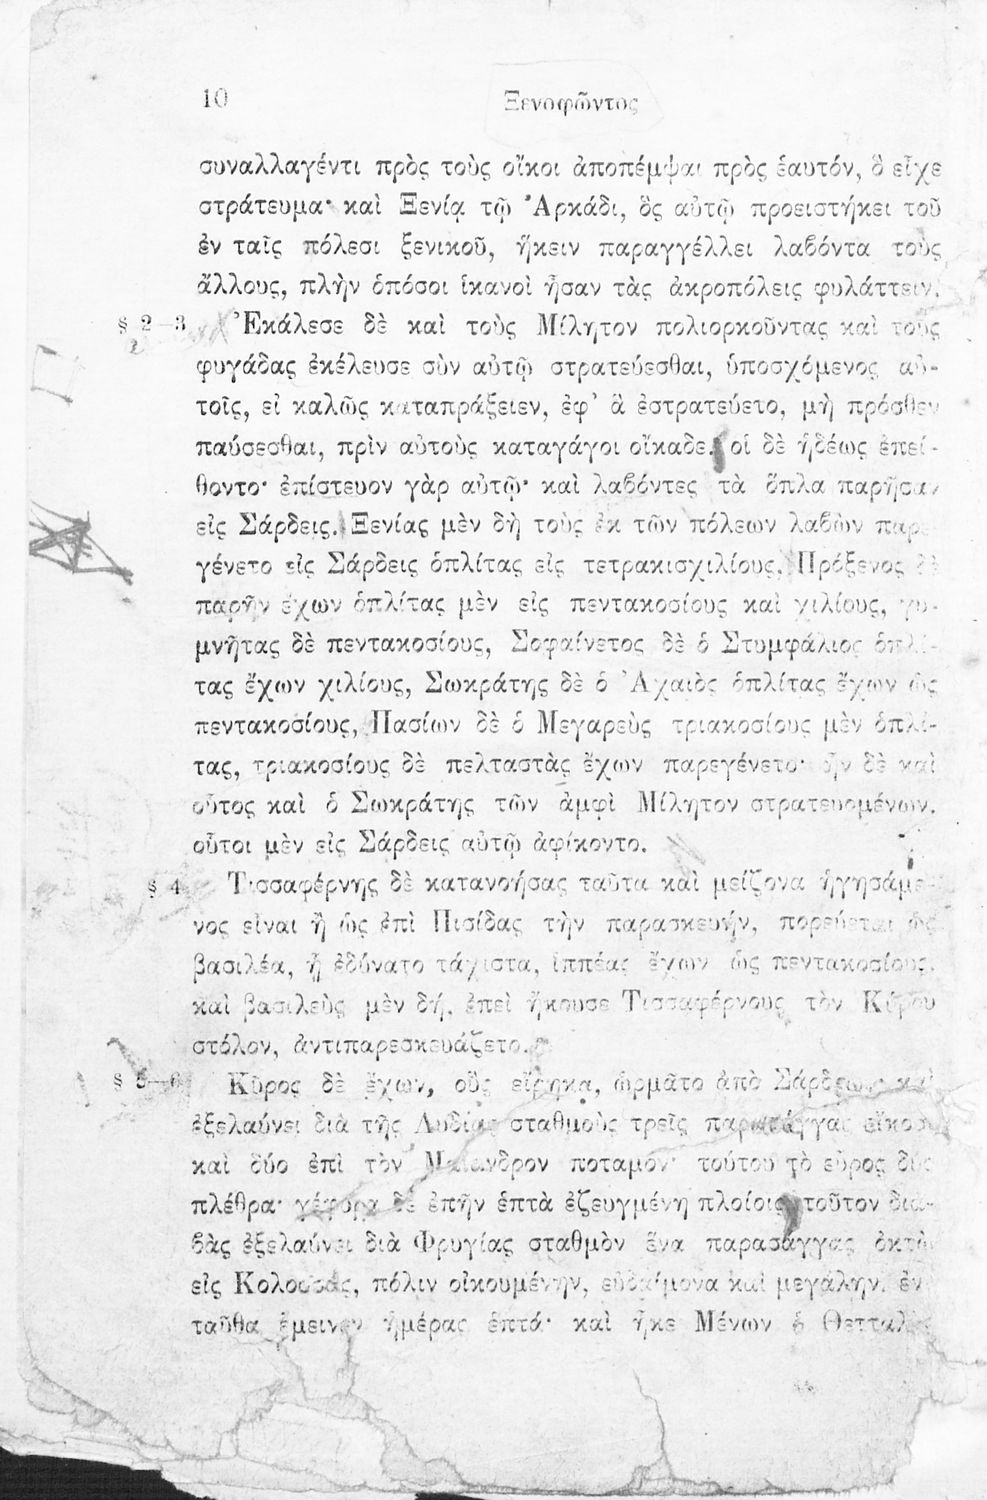 10 Ξενοφῶντος
συναλλαγέντι πρὸς τοὺς οἴκοι ἀποπέμψαι πρὸς ἑαυτόν, ὃ εἶχε
στράτευμα· καὶ Ξενίᾳ τῷ Ἀρκάδι, ὃς αὐτῷ προειστήκει τοῦ
ἐν ταῖς πόλεσι ξενικοῦ, ἥκειν παραγγέλλει λαβόντα τοὺς
ἄλλους, πλὴν ὁπόσοι ἱκανοὶ ἦσαν τὰς ἀκροπόλεις φυλάττειν.
§ 2—3 Ἐκάλεσε δὲ καὶ τοὺς Μίλητον πολιορκοῦντας καὶ τοὺς
φυγάδας ἐκέλευσε σὺν αὐτῷ στρατεύεσθαι, ὑποσχόμενος αὐ-
τοῖς, εἰ καλῶς καταπράξειεν, ἐφ' ἃ ἐστρατεύετο, μὴ πρόσθεν
παύσεσθαι, πρὶν αὐτοὺς καταγάγοι οἴκαδε. οἱ δὲ ἡδέως ἐπεί-
θοντο· ἐπίστευον γὰρ αὐτῷ· καὶ λαβόντες τὰ ὅπλα παρῆσαν
εἰς Σάρδεις. Ξενίας μὲν δὴ τοὺς ἐκ τῶν πόλεων λαβὼν παρε-
γένετο εἰς Σάρδεις ὁπλίτας εἰς τετρακισχιλίους. Πρόξενος δὲ
παρῆν ἔχων ὁπλίτας μὲν εἰς πεντακοσίους καὶ χιλίους, γυ-
μνῆτας δὲ πεντακοσίους, Σοφαίνετος δὲ ὁ Στυμφάλιος ὁπλί-
τας ἔχων χιλίους, Σωκράτης δὲ ὁ Ἀχαιὸς ὁπλίτας ἔχων ὡς
πεντακοσίους, Πασίων δὲ ὁ Μεγαρεὺς τριακοσίους μὲν ὁπλί-
τας, τριακοσίους δὲ πελταστὰς ἔχων παρεγένετο· ἦν δὲ καὶ
οὗτος καὶ ὁ Σωκράτης τῶν ἀμφὶ Μίλητον στρατευομένων.
οὗτοι μὲν εἰς Σάρδεις αὐτῷ ἀφίκοντο.
§ 4 Τισσαφέρνης δὲ κατανοήσας ταῦτα καὶ μείζονα ἡγησάμε-
νος εἶναι ἢ ὡς ἐπὶ Πισίδας τὴν παρασκευήν, πορεύεται ὡς
βασιλέα, ᾗ ἐδύνατο τάχιστα, ἱππέας ἔχων ὡς πεντακοσίους.
καὶ βασιλεὺς μὲν δή, ἐπεὶ ἤκουσε Τισσαφέρνους τὸν Κύρου
στόλον, ἀντιπαρεσκευάζετο.
§ 5—6 Κῦρος δὲ ἔχων, οὓς εἴρηκα, ὡρμᾶτο ἀπὸ Σάρδεων· καὶ
ἐξελαύνει διὰ τῆς Λυδίας σταθμοὺς τρεῖς παρασάγγας εἴκοσι
καὶ δύο ἐπὶ τὸν Μαίανδρον ποταμόν· τούτου τὸ εὖρος δύο
πλέθρα· γέφυρα δὲ ἐπῆν ἑπτὰ ἐζευγμένη πλοίοις. τοῦτον δια-
βὰς ἐξελαύνει διὰ Φρυγίας σταθμὸν ἕνα παρασάγγας ὀκτὼ
εἰς Κολοσσάς, πόλιν οἰκουμένην, εὐδαίμονα καὶ μεγάλην. ἐν-
ταῦθα ἔμεινεν ἡμέρας ἑπτά· καὶ ἧκε Μένων ὁ Θετταλὸς